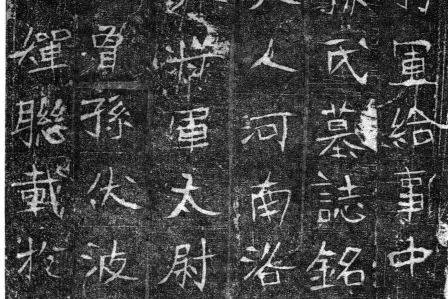 軍給事中
氏墓誌銘
人河南洛
將軍太尉
曾孫伏波
煇聯載於